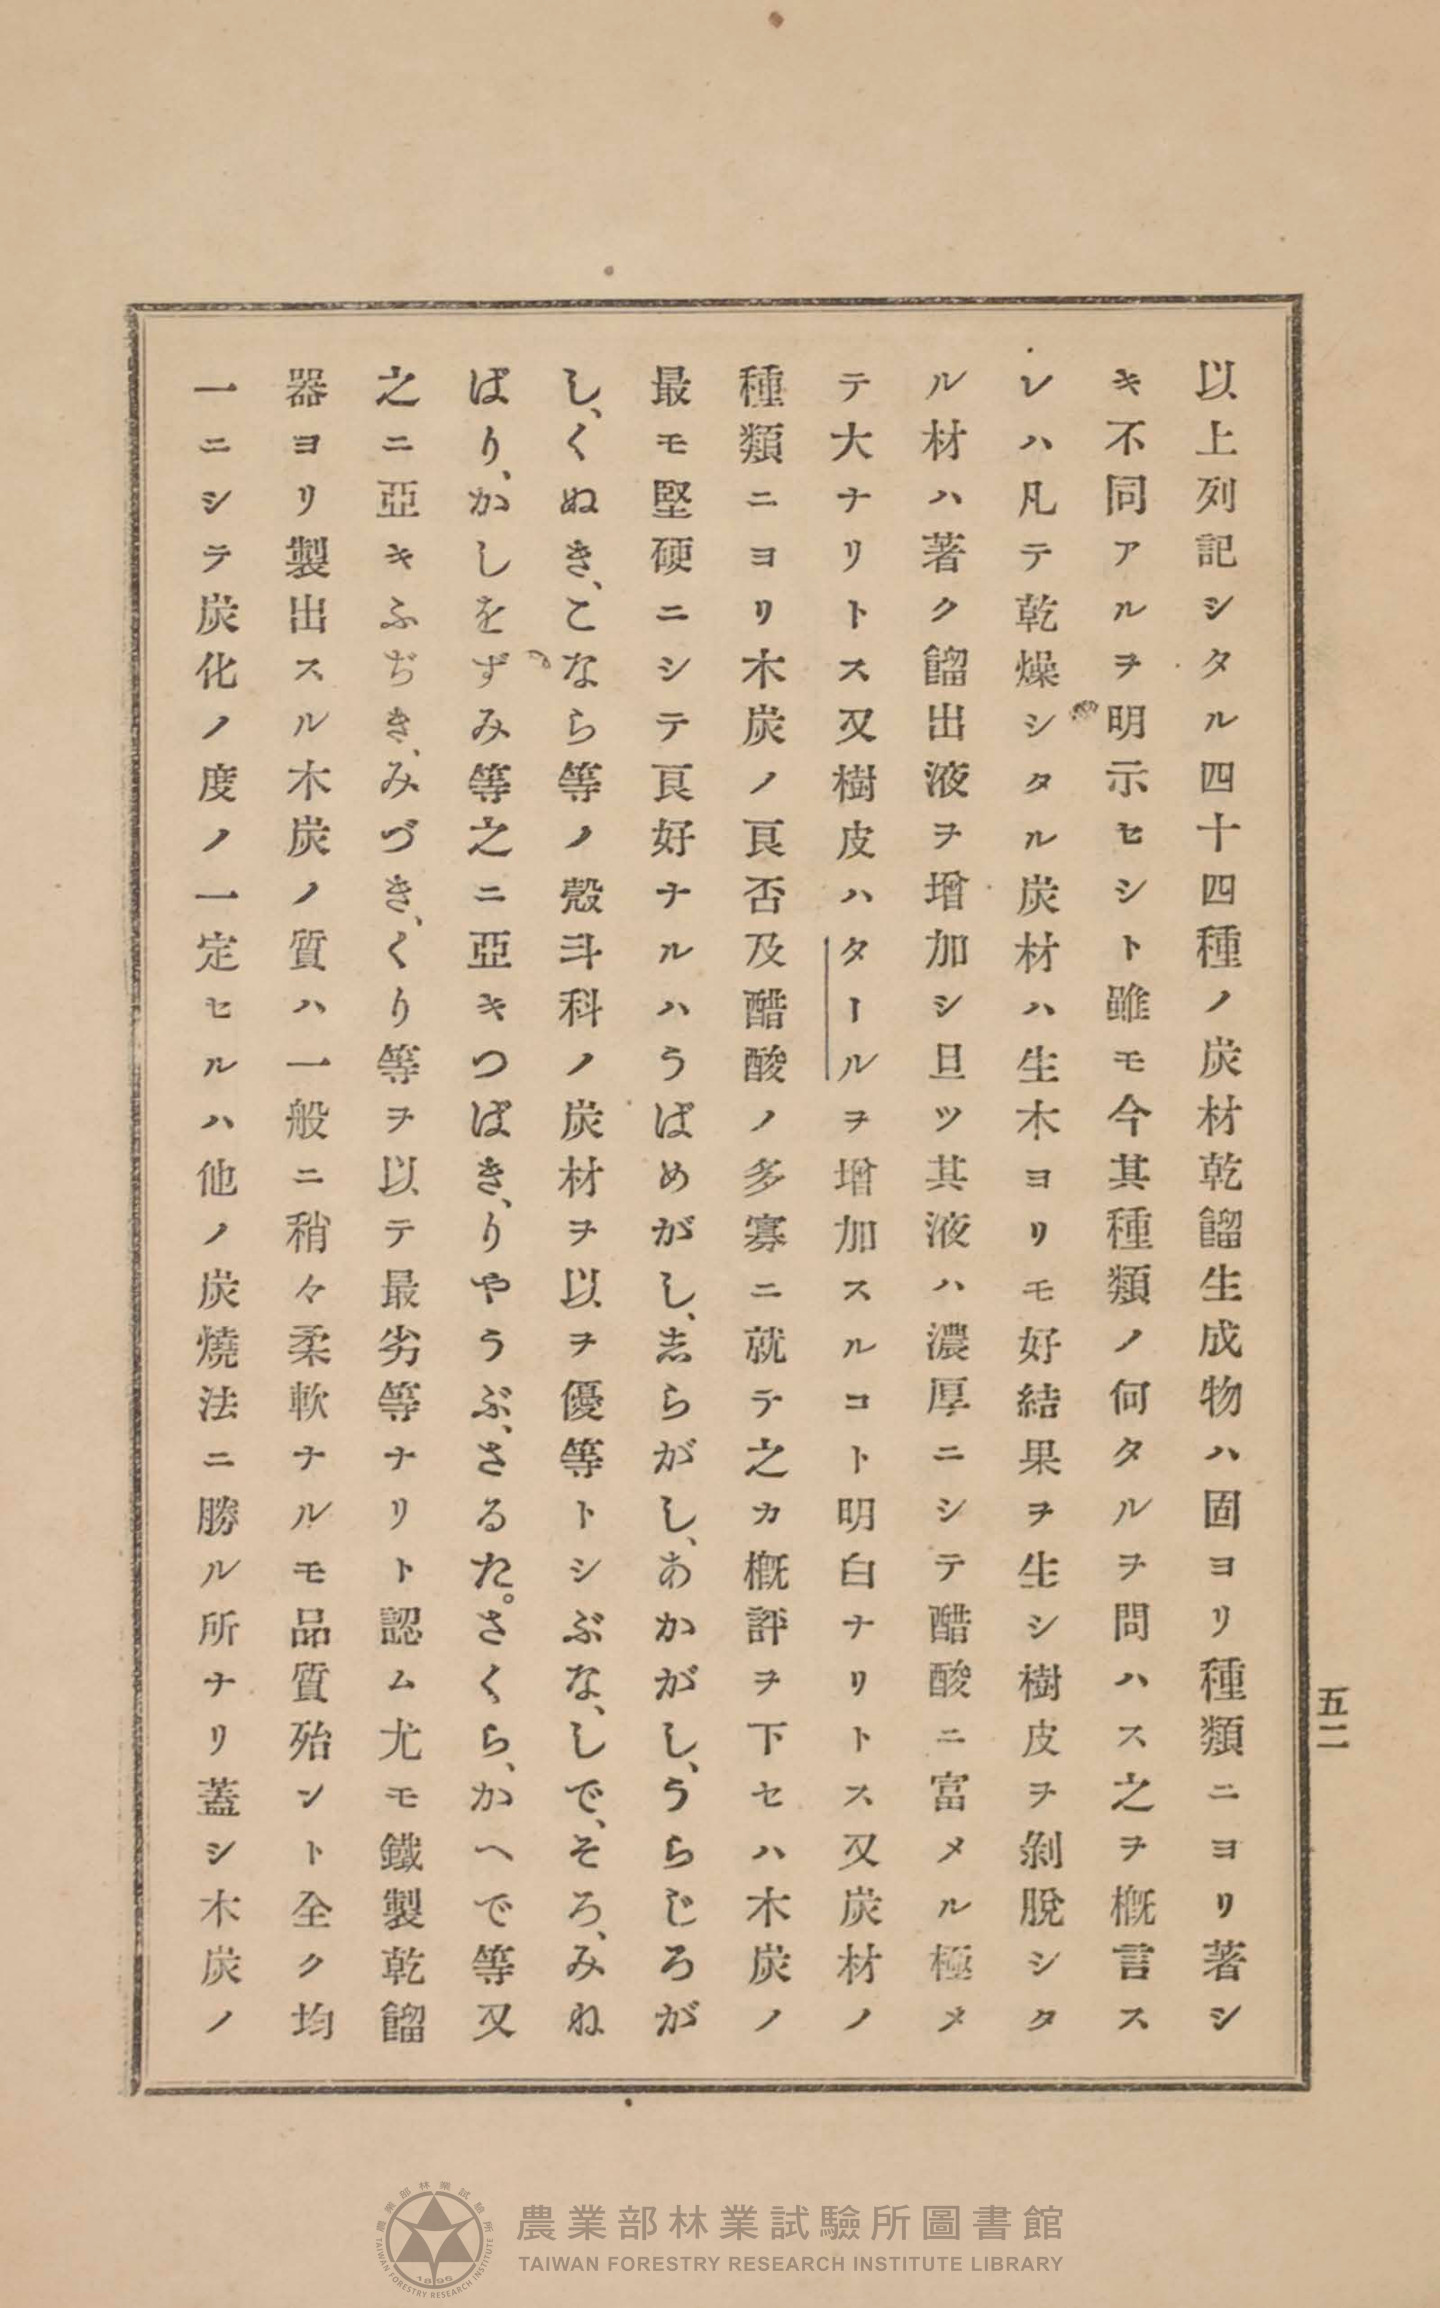 以上列記シタル四十四種ノ炭材乾餾生成物ハ固ヨリ種類ニヨリ著シ
キ不同アルヲ明示セシト雖モ今其種類ノ何タルヲ問ハス之ヲ概言ス
レハ凡テ乾燥シタル炭材ハ生木ヨリモ好結果ヲ生シ樹皮ヲ剝脫シタ
ル材ハ著ク餾出液ヲ增加シ且ツ其液ハ濃厚ニシテ醋酸ニ富メル極メ
テ大ナリトス又樹皮ハタールヲ增加スルコト明白ナリトス又炭材ノ
種類ニヨリ木炭ノ良否及醋酸ノ多寡ニ就テ之カ概評ヲ下セハ木炭ノ
最モ堅硬ニシテ良好ナルハうばめがし、志らがし、あかがし、うらじろが
し、くぬき、こなら等ノ殻斗科ノ炭材ヲ以ヲ優等トシぶな、しで、そろ、みね
ばり、かしをずみ等之ニ亞キつばき、りやうぶ、さるた。さくら、かへで等又
之ニ亞キふぢき、みづき、くり等ヲ以テ最劣等ナリト認ム尤モ鐵製乾餾
器ヨリ製出スル木炭ノ質ハ一般ニ稍々柔軟ナルモ品質殆ント全ク均
一ニシテ炭化ノ度ノ一定セルハ他ノ炭燒法ニ勝ル所ナリ蓋シ木炭ノ
五二
農業部林業試驗所圖書館
TAIWAN FORESTRY RESEARCH INSTITUTE LIBRARY
農業部林業試驗所
TAIWAN FORESTRY RESEARCH INSTITUTE
1896